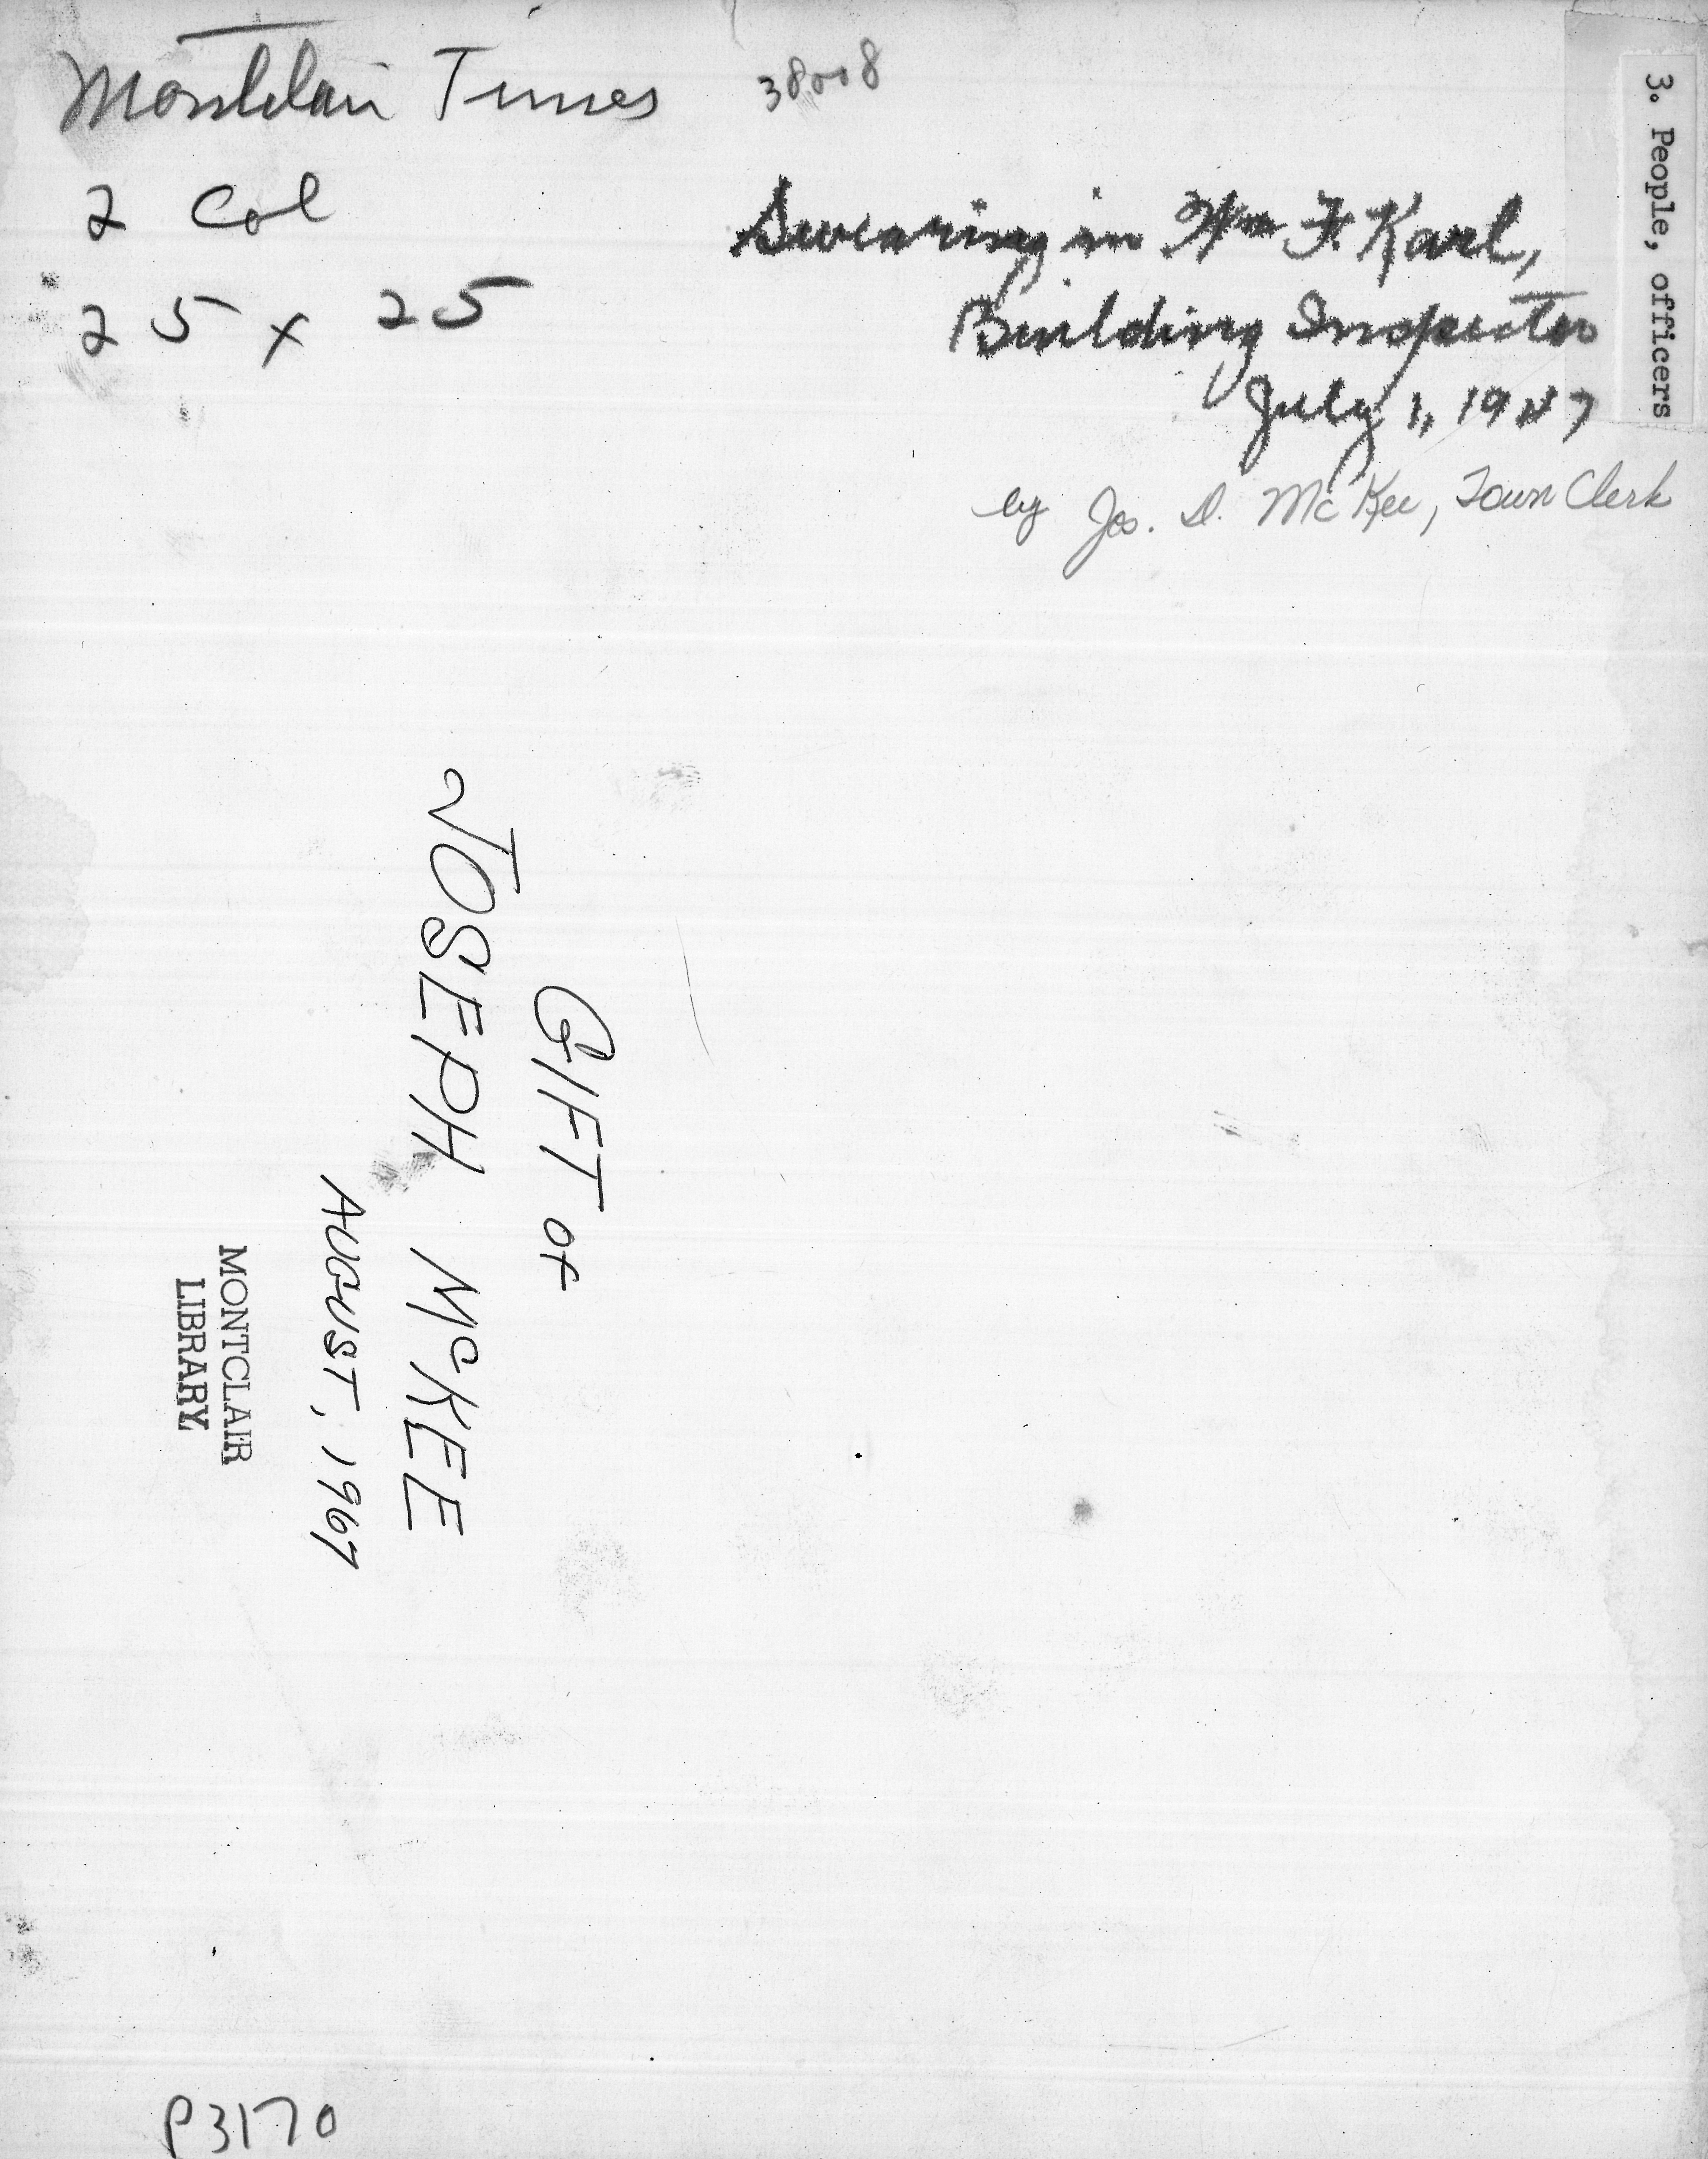 Montclair Times
2 Col
25 x 25
38008
Swearing in Wm F. Karl,
Building Inspector
July 1, 1947
by Jos. D. McKee, Town Clerk
3. People, officers
GIFT OF
JOSEPH McKEE
AUGUST, 1967
MONTCLAIR
LIBRARY
P3170